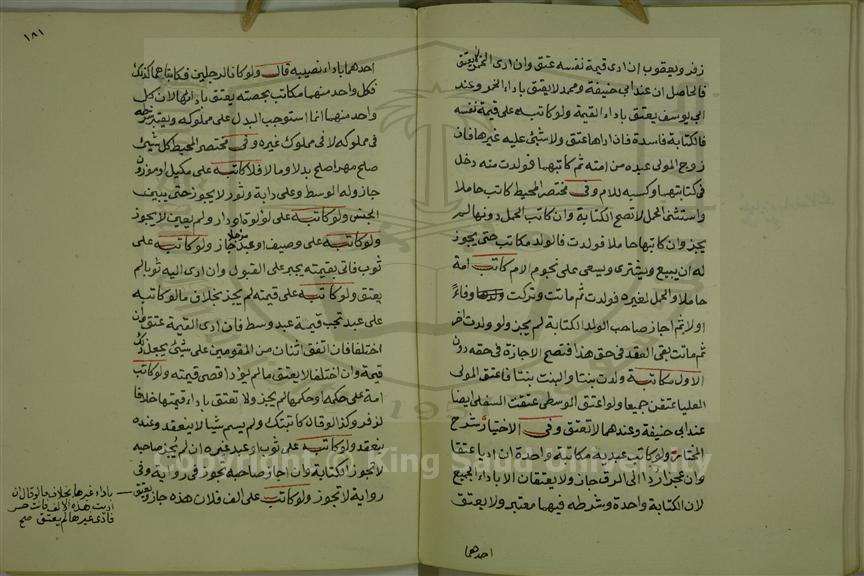 زفر ويعقوب ان ادى قيمة نفسه عتق وان ادى الخمر لا يعتق
فالحاصل ان عند ابي حنيفة ومحمد لا يعتق باداء الخمر وعند
ابي يوسف يعتق باداء القيمة ولو كاتبه على قيمة نفسه
فالكتابة فاسدة فان اداها عتق ولا شئ عليه غيرها فان
زوج المولى عبده من امته ثم كاتبهما فولدت منه دخل
في كتابتهما وكسبه للام وفي مختصر المحيط كاتب حاملا
واستثنى الحمل لا تصح الكتابة وان كاتب الحمل دونها لم
يجز وان كاتبها حاملا فولدت فالولد مكاتب حتى يجوز
له ان يبيع ويشترى ويسعى على نجوم الام كاتب امة
حاملا والحمل لغيره فولدت ثم ماتت وتركت وفاءً
اولا ثم اجاز صاحب الولد الكتابة لم يجز ولو ولدت اخر
ثم ماتت بقى العقد في حق هذا فتصح الاجازة في حقه دون
الاول مكاتبة ولدت بنتا والبنت بنتا فاعتق المولى
العليا عتقن جميعا ولو اعتق الوسطى عتقت السفلى ايضا
عند ابي حنيفة وعندهما لا تعتق وفي الاختيار شرح
المختار ولو كاتب عبديه مكاتبة واحدة ان اديا عتقا
وان عجزا ردا الى الرق جاز ولا يعتقان الا باداء الجميع
لان الكتابة واحدة وشرطه فيهما معتبر ولا يعتق
احدهما
١٨١
احدهما باداء نصيبه قال ولو كانا لرجلين فكاتباهما كذلك
فكل واحد منهما مكاتب بحصته يعتق بادائها لان كل
واحد منهما انما استوجب البدل على مملوكه ويعتبر شرطه
في مملوكه لا في مملوك غيره وفي مختصر المحيط كل شئ
صلح مهرا صلح بدلا وما لا فلا كاتبه على مكيل او موزون
جاز وله الوسط وعلى دابة وثور لا يجوز حتى يبين
الجنس ولو كاتبه على لؤلؤة او دار ولم يعين لا يجوز
ولو كاتبه على وصيف او عبد مؤجلا جاز ولو كاتبه على
ثوب فاتى بقيمته يجبر على القبول وان ادى اليه ثوبا لم
يعتق ولو كاتبه على قيمته لم يجز بخلاف ما لو كاتبه
على عبد تجب قيمة عبد وسط فان ادى القيمة عتق وان
اختلفا فان اتفق اثنان من المقومين على شئ يجعل ذلك
قيمة وان اختلفا لا يعتق ما لم يؤد اقصى قيمته ولو كاتب
امة على حكمه او حكمها لم يجز ولا تعتق باداء قيمتها خلافا
لزفر وكذا لو قال كاتبتك ولم يسم شيئا لا ينعقد وعنده
ينعقد ولو كاتب على ثوب او عبد غيره ان لم يجز صاحبه
لا تجوز الكتابة وان اجاز صاحبه يجوز في رواية وفي
رواية لا تجوز ولو كاتب على الف فلان هذه جاز ويعتق
باداء غيرها بخلاف ما لو قال ان
اديت هذه الالف فانت حر
فادى غيرها لم يعتق صح
Copyright © King Saud University